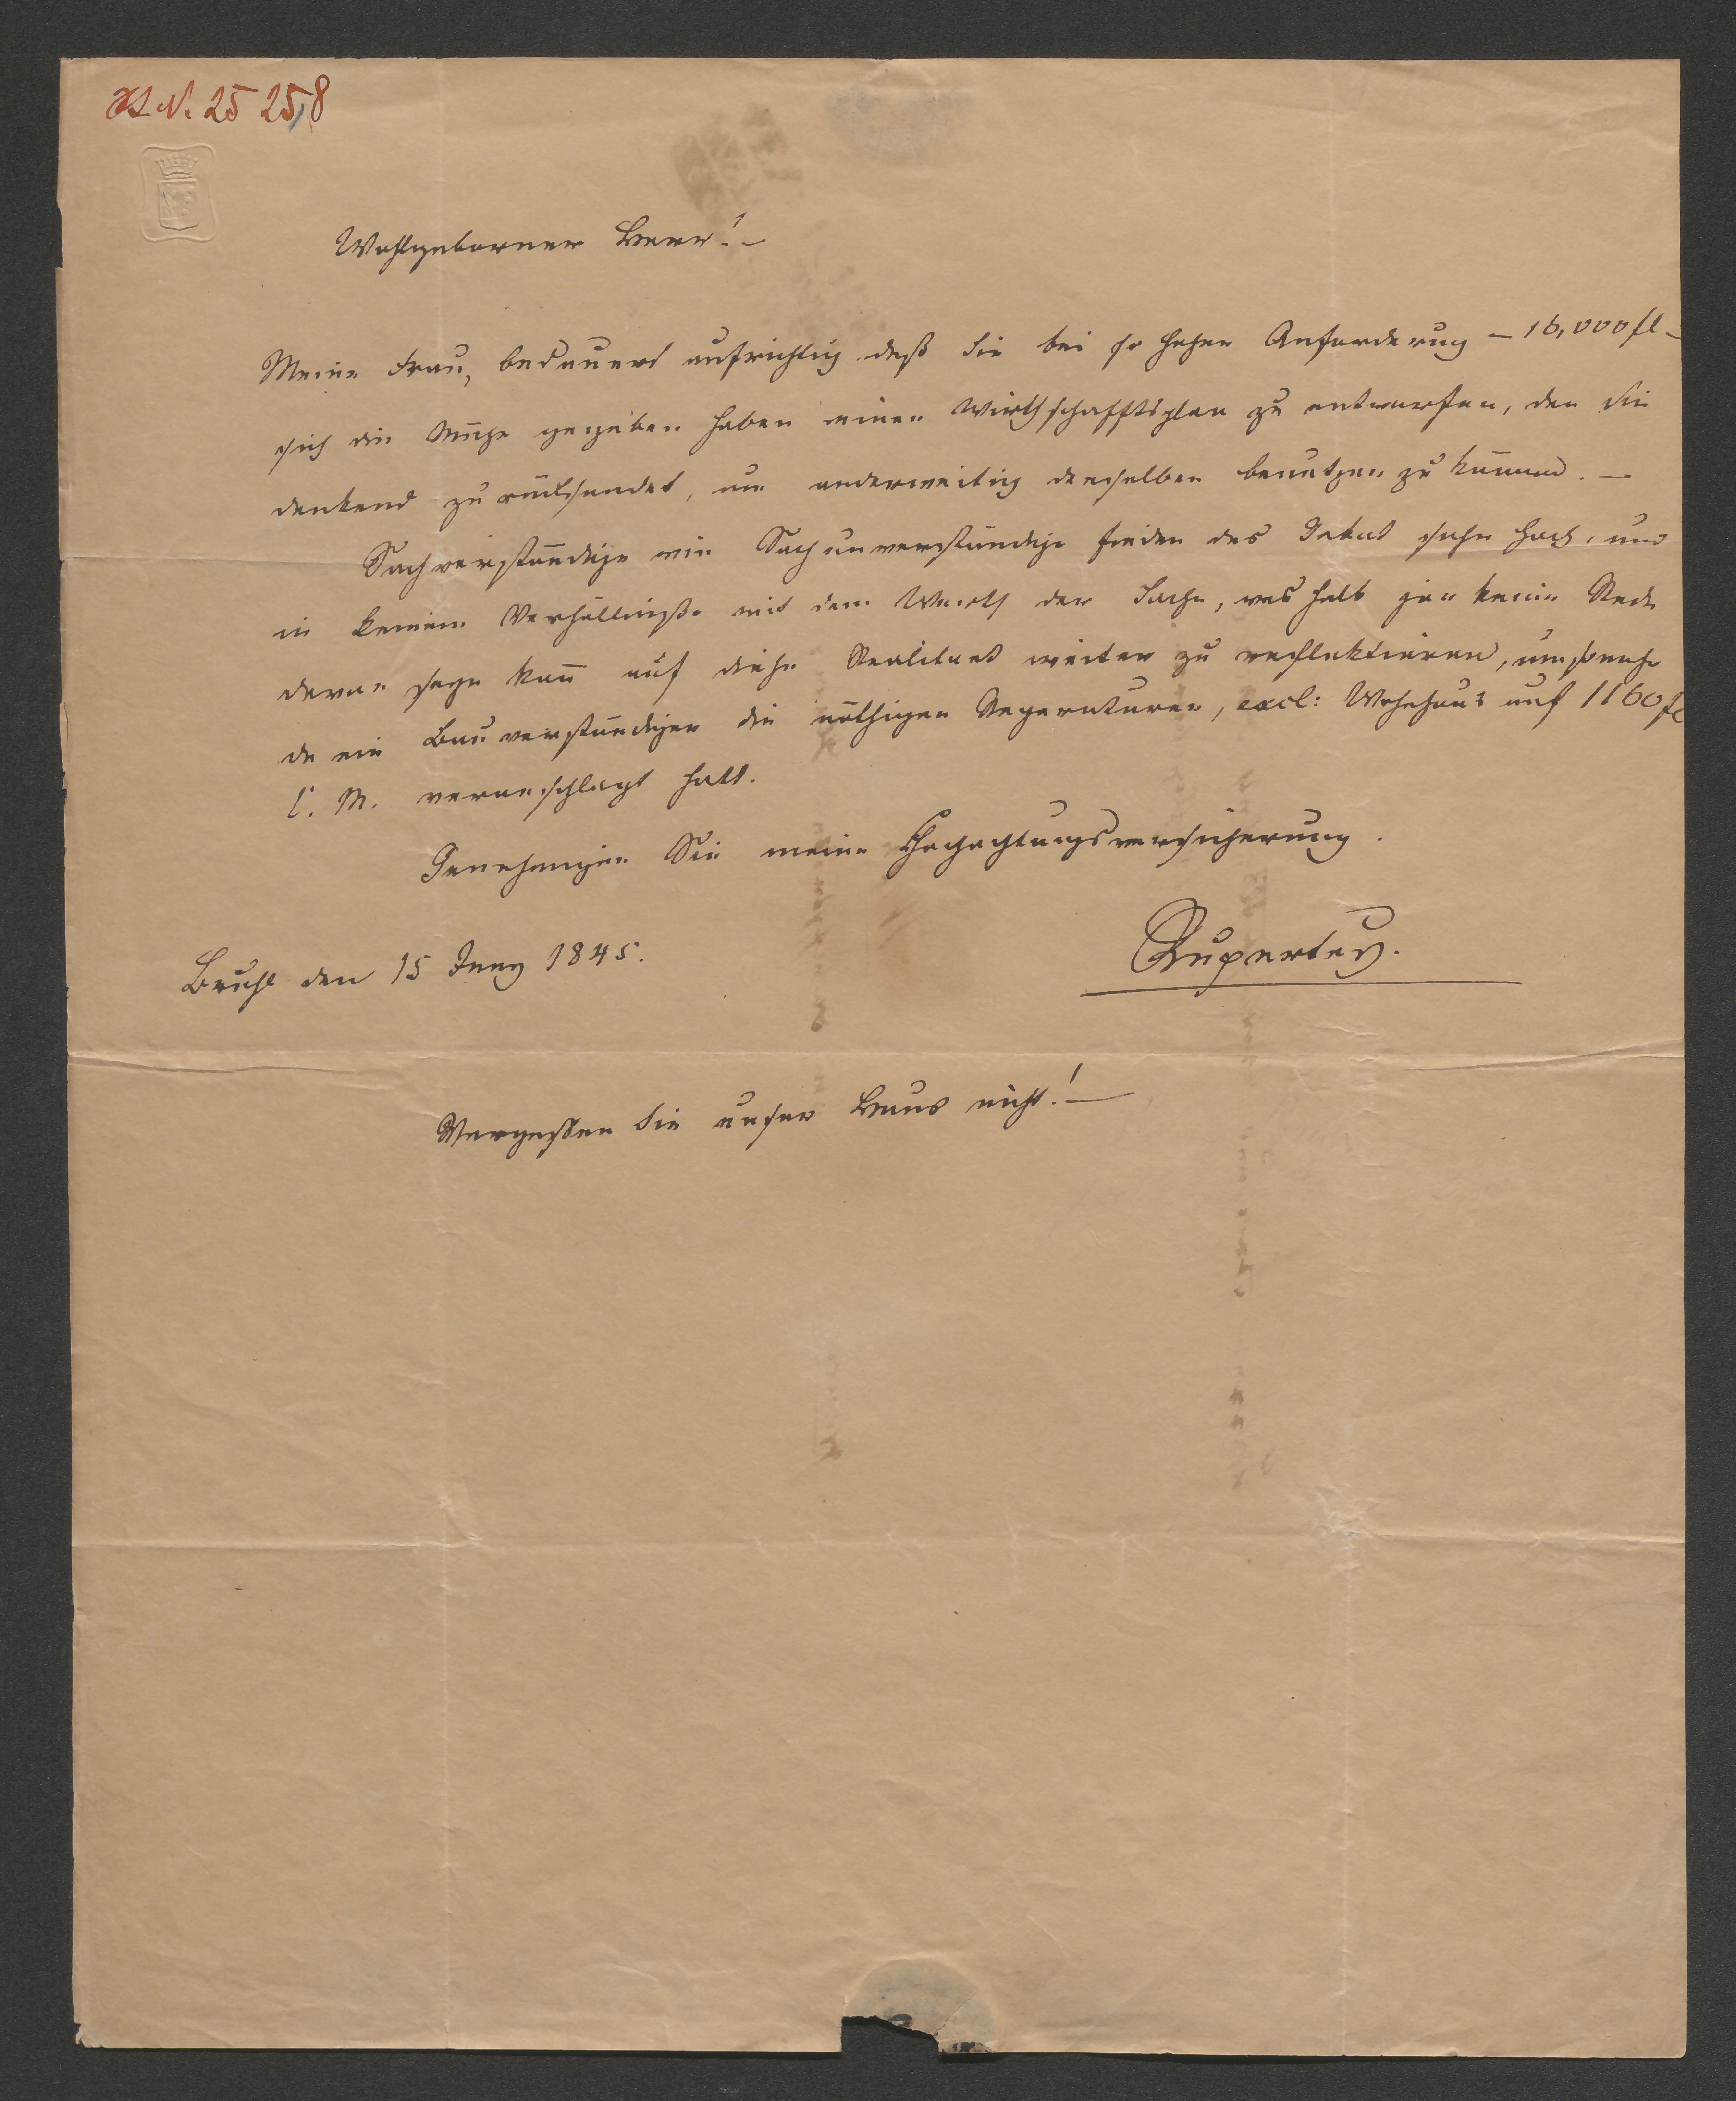 H.I.N. 25 25,8
Wohlgeborner Herr! –
Meine Frau, bedauert aufrichtig daß Sie bei so hoher Anforderung – 16,000 fl –
sich die Mühe gegeben haben einen Wirthschafftsplan zu entwerfen, den sie
dankend zurücksendet, um anderweitig denselben benutzen zu können. –
Sachverständige wie Sachunverständige finden das Gebot sehr hoch, und
in keinem Verhältniße mit dem Werth der Sache, weshalb gar keine Rede
davon seyn kann auf diese Realitaet weiter zu reflektieren, umsomehr
da ein Bauverständiger die nöthigen Reparaturen, excl: Wohnhaus auf 1160 fl
C. M. veranschlagt hatt.
Genehmigen Sie meine Hochachtungsversicherung.
Bruhl den 15 Juny 1845.
Vergeßen Sie unser Haus nicht! –